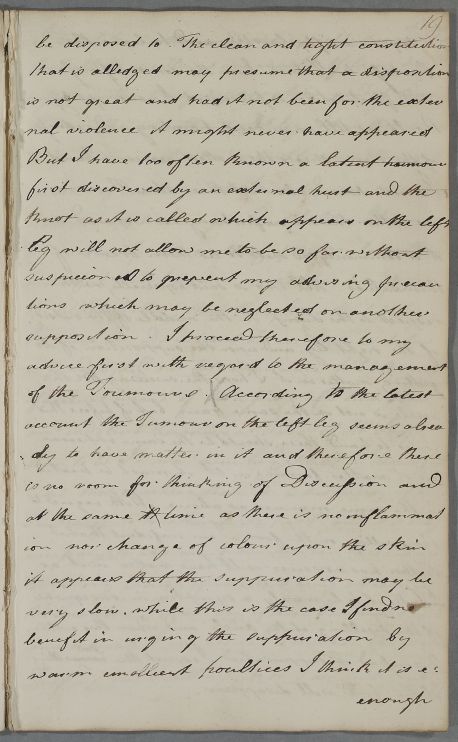 19
be disposed to. The clean and tight constitution
that is alledged may presume that a disposition
is not great and had it not been for the exter
nal violence it might never have appeared
But I have too often known a latent humour
first discovered by an external hurt and the
Knot as it is called which appears on the left
Leg will not allow me to be so far without
suspicion as to prevent my advising precau
tions which may be neglected on another
supposition. I proceed therefore to my
advice first with regard to the management
of the Toumours. According to the latest
account the Tumour on the left leg seems alrea
dy to have matter in it and therefore there
is no room for thinking of Discussion and
at the same time as there is no inflammat
ion nor change of colour upon the skin
it appears that the suppuration may be
very slow, while this is the case I find no
benefit in urging the suppuration by
warm emollient poultices I think it is e:
enough